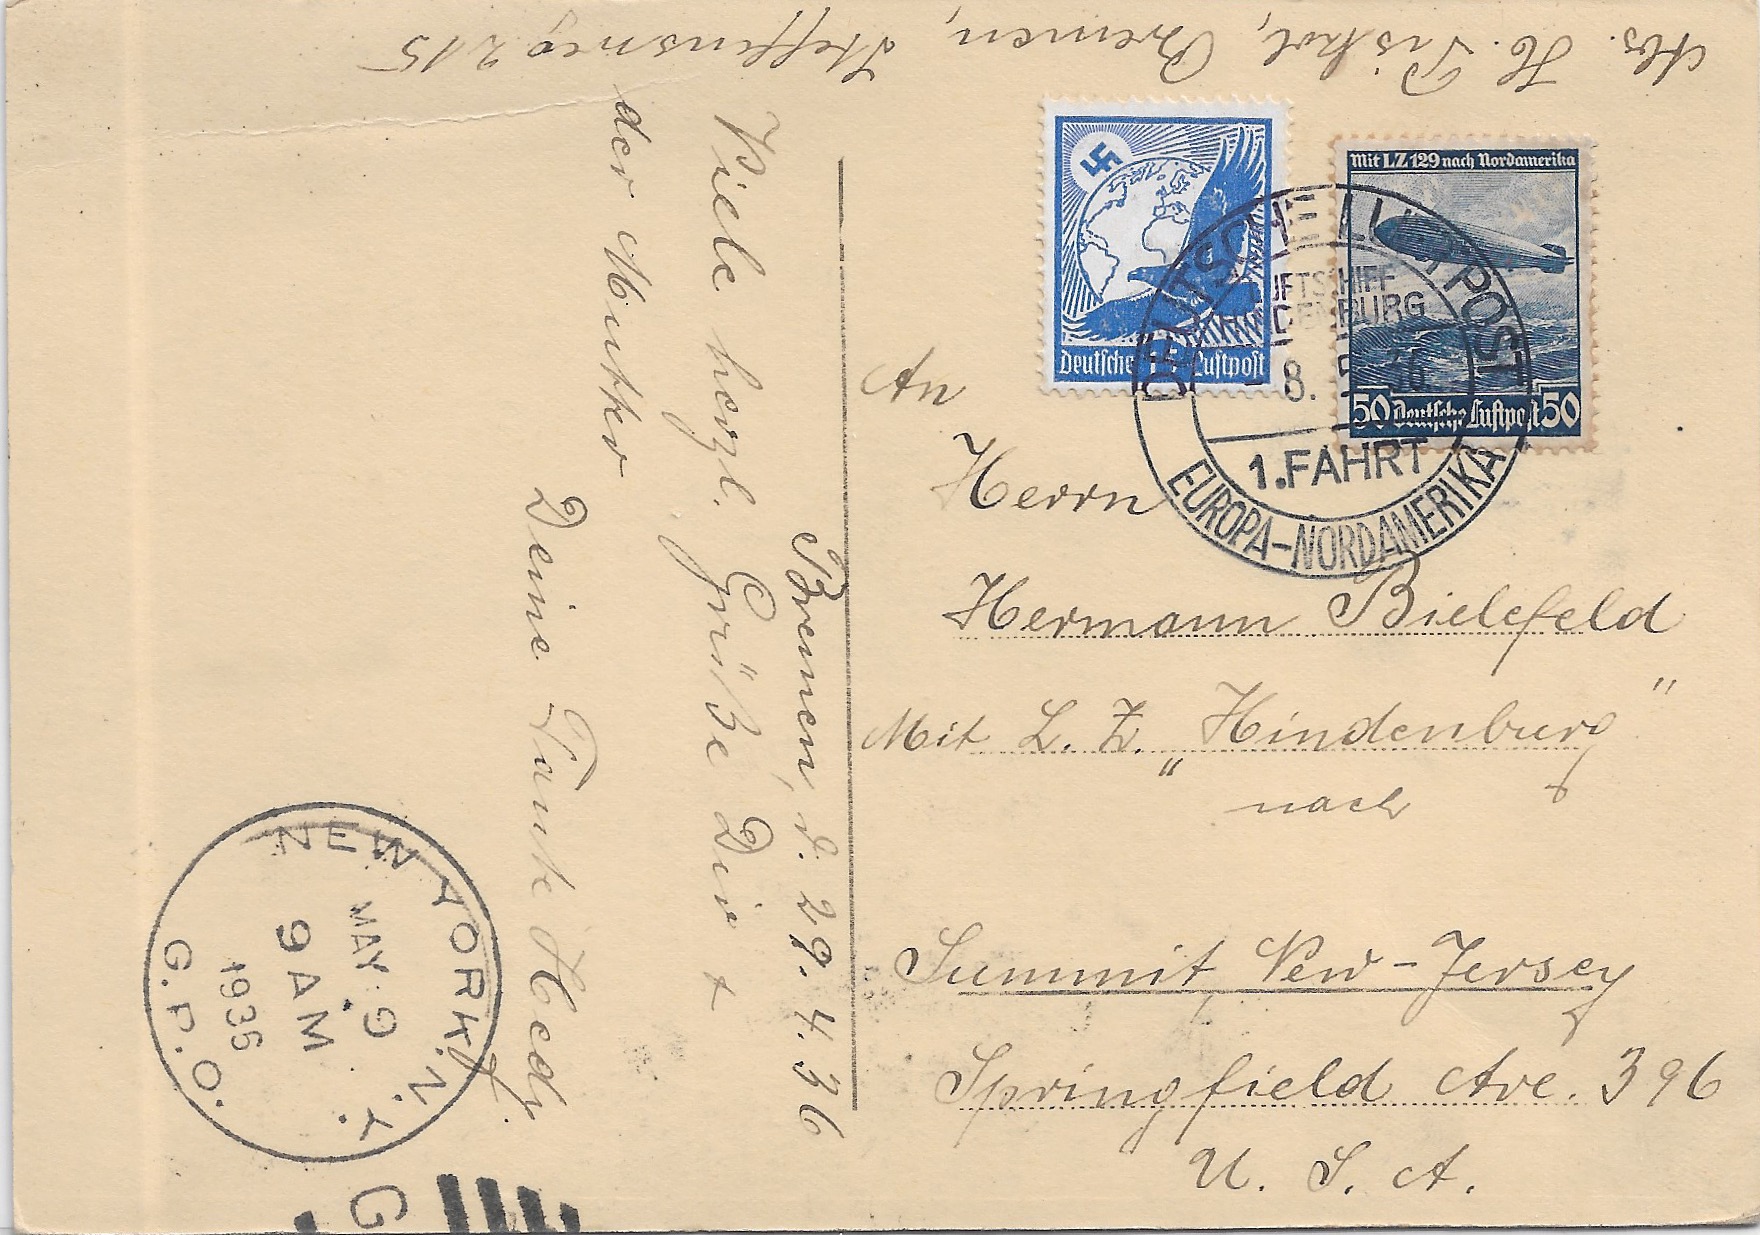 Abs. H. Piskol, Bremen, Steffensweg 215
Bremen, d. 29. 4. 36
Viele herzl. Grüße Dir +
der Mutter
Deine Tante Hedy.
Mit LZ 129 nach Nordamerika
50 Deutsche Luftpost 50
Deutsche Luftpost
DEUTSCHE LUFTPOST
LUFTSCHIFF
HINDENBURG
1.FAHRT
EUROPA-NORDAMERIKA
An
Herrn
Hermann Bielefeld
Mit L. Z. „Hindenburg"
nach
Summit New-Jersey
Springfield Ave. 396
U. S. A.
NEW YORK, N.Y.
MAY 9
9 AM
1936
G.P.O.
G